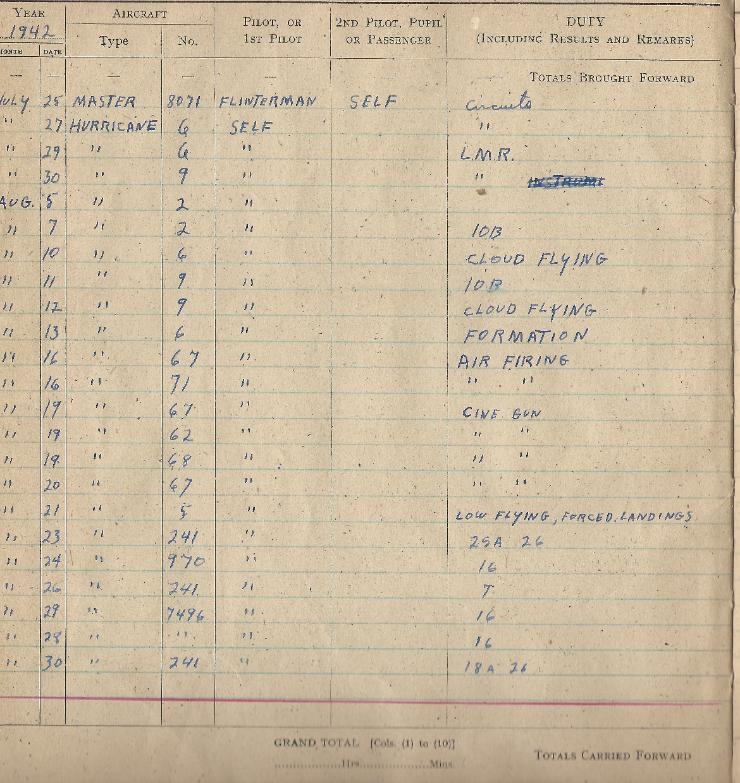 YEAR AIRCRAFT PILOT, OR 2ND PILOT, PUPIL DUTY
1942 1ST PILOT OR PASSENGER (INCLUDING RESULTS AND REMARKS)
MONTH DATE Type No.
— — — — TOTALS BROUGHT FORWARD
JULY 25 MASTER 8071 FLINTERMAN SELF Circuits
" 27 HURRICANE 6 SELF "
" 29 " 6 " L.M.R.
" 30 " 9 " " INSTRUMT
AUG. 5 " 2 "
" 7 " 2 " 10B
" 10 " 6 " CLOUD FLYING
" 11 " 9 " 10B
" 12 " 9 " CLOUD FLYING
" 13 " 6 " FORMATION
" 16 " 67 " AIR FIRING
" 16 " 71 " " "
" 19 " 67 " CINE GUN
" 19 " 62 " " "
" 19 " 68 " " "
" 20 " 67 " " "
" 21 " 5 " LOW FLYING, FORCED LANDINGS
" 23 " 241 " 25A 26
" 24 " 970 " 16
" 26 " 241 " T
" 29 " 7496 " 16
" 28 " " " 16
" 30 " 241 " 18A 26
GRAND TOTAL [Cols. (1) to (10)] TOTALS CARRIED FORWARD
..........Hrs...........Mins.